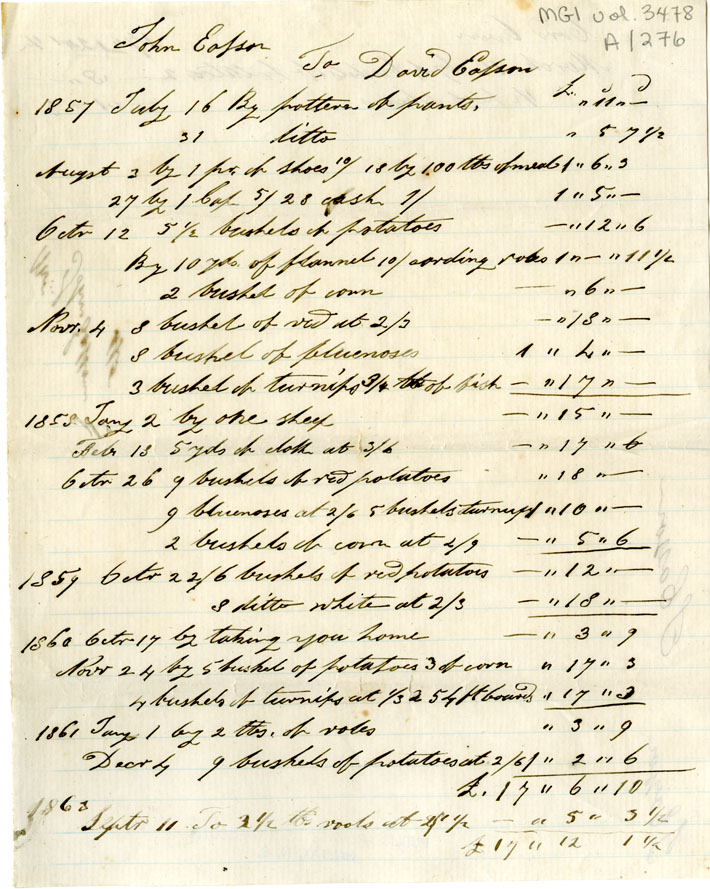 MG1 vol. 3478
A/276
John Easson
To David Easson
£ s d
1857 July 16 By pattern of pants, " 11 " —
31 ditto " 5 7 1/2
Augst 3 by 1 pr. of shoes 10/ 18 by 100 lbs of meal 1 " 6 " 3
27 by 1 Cap 5/ 28 cash 1/ 1 " 5 " —
Octr 12 5 1/2 bushels of potatoes — " 12 " 6
By 10 yds. of flannel 10/ cording roles 1 " — " 11 1/2
2 bushel of corn — " 6 " —
Novr. 4 8 bushel of red at 2/3 — " 18 " —
8 bushel of bluenoses 1 " 4 " —
3 bushel of turnips 3/4 lb of — " 17 " —
1858 Jany 2 by one sheep — " 15 " —
Febr 18 5 yds of cloth at 3/6 — " 17 " 6
Octr 26 9 bushels of red potatoes " 18 " —
9 bluenoses at 2/6 5 bushels turnips 1 " 10 " —
2 bushels of corn at 4/9 — " 5 " 6
1859 Octr 22 /6 bushels of red potatoes — " 12 " —
8 ditto white at 2/3 — " 18 " —
1860 Octr 17 by taking you home — " 3 " 9
Novr 24 by 5 bushel of potatoes 3 of corn " 17 " 3
4 bushels of turnips at 1/3 254 ft boards " 17 " 3
1861 Jany 1 by 2 lbs. of roles " 3 " 9
Decr 4 9 bushels of potatoes at 2/6 1 " 2 " 6
£. 17 " 6 " 10
1863
Septr 11 To 2 1/2 lbs rools at — " 5 " 3 1/2
£ 17 " 12 1 1/2